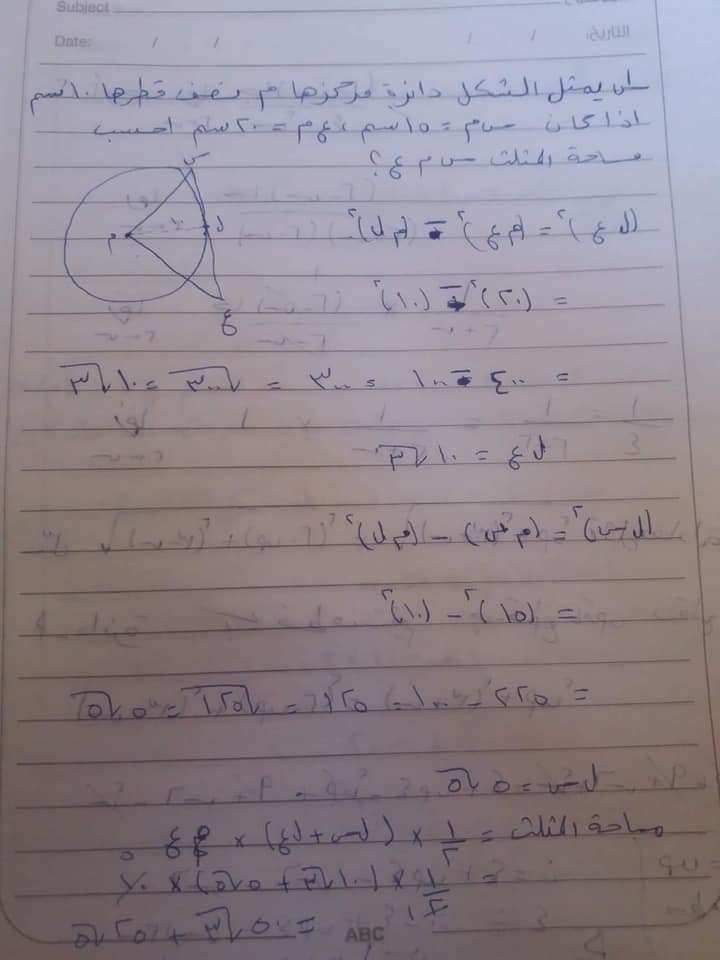 Subject
Date: / /
/ / التاريخ:
س/ يمثل الشكل دائرة مركزها م نصف قطرها ١٠ سم
اذا كان س م = ١٥ سم ، ع م = ٢٠ سم احسب
مساحة المثلث س م ع ؟
س
م ١٠ ل
ع
(ل ع)² = (م ع)² - (م ل)²
= (٢٠)² - (١٠)²
= ٤٠٠ - ١٠٠ = ٣٠٠ = √٣٠٠ = ١٠√٣
ل ع = ١٠√٣
(ل س)² = (م س)² - (م ل)²
= (١٥)² - (١٠)²
= ٢٢٥ - ١٠٠ = ١٢٥ = √١٢٥ = ٥√٥
ل س = ٥√٥
مساحة المثلث = ١/٢ × (ل س + ل ع) ×
= ١/٢ × (١٠√٣ + ٥√٥) × ١٠ ٥
= ٥٠√٣ + ٢٥√٥
ABC